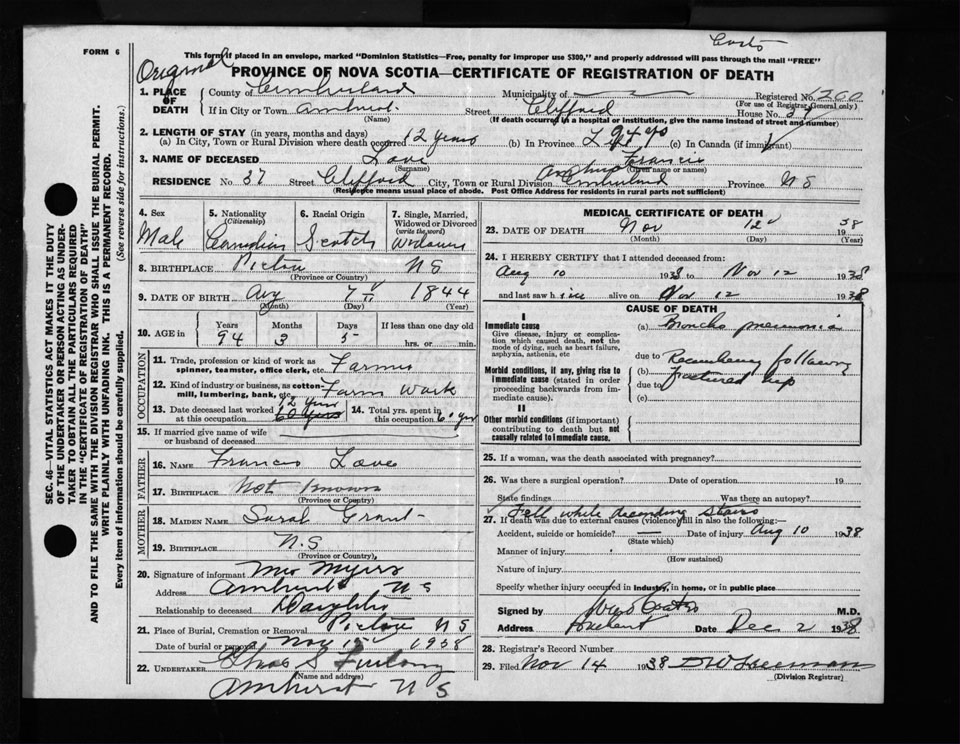 FORM 6
This form if placed in an envelope, marked "Dominion Statistics—Free, penalty for improper use $300," and properly addressed will pass through the mail "FREE"
Original
PROVINCE OF NOVA SCOTIA—CERTIFICATE OF REGISTRATION OF DEATH
1. PLACE OF DEATH
County of Cumberland Municipality of Registered No. 1200
(For use of Registrar General only)
If in City or Town Amherst. Street Clifford House No. 37
(Name) (If death occurred in a hospital or institution, give the name instead of street and number)
2. LENGTH OF STAY (in years, months and days)
(a) In City, Town or Rural Division where death occurred 12 years (b) In Province 94 yrs (c) In Canada (if immigrant)
3. NAME OF DECEASED Love Francis
(Surname) (Given name or names)
RESIDENCE No. 37 Street Clifford City, Town or Rural Division Amherst Cumberland Province N S
(Residence means usual place of abode. Post Office Address for residents in rural parts not sufficient)
4. Sex
Male
5. Nationality
(Citizenship)
Canadian
6. Racial Origin
Scotch
7. Single, Married, Widowed or Divorced
(write the word)
Widower
8. BIRTHPLACE Pictou N S
(Province or Country)
9. DATE OF BIRTH Aug 7 1844
(Month) (Day) (Year)
10. AGE in
Years Months Days If less than one day old
94 3 5 hrs. or min.
OCCUPATION
11. Trade, profession or kind of work as
spinner, teamster, office clerk, etc. Farmer
12. Kind of industry or business, as cotton-
mill, lumbering, bank, etc. Farm work
13. Date deceased last worked at this occupation 12 years
14. Total yrs. spent in this occupation 60 yrs
15. If married give name of wife
or husband of deceased
FATHER
16. NAME Francis Love
17. BIRTHPLACE Not Known
(Province or Country)
MOTHER
18. MAIDEN NAME Sarah Grant
19. BIRTHPLACE N.S
(Province or Country)
20. Signature of informant Mrs Myers
Address Amherst N S
Relationship to deceased Daughter
21. Place of Burial, Cremation or Removal Pictou N S
Date of burial or removal Nov 1938
22. UNDERTAKER Chas S Furlong
(Name and address)
Amherst N S
MEDICAL CERTIFICATE OF DEATH
23. DATE OF DEATH Nov 12 1938
(Month) (Day) (Year)
24. I HEREBY CERTIFY that I attended deceased from:
Aug 10 1938 to Nov 12 1938
and last saw h alive on Nov 12 1938
CAUSE OF DEATH
I
Immediate cause
Give disease, injury or complication which caused death, not the mode of dying, such as heart failure, asphyxia, asthenia, etc
(a) Broncho pneumonia
due to
Morbid conditions, if any, giving rise to immediate cause (stated in order proceeding backwards from immediate cause).
(b) Recumbency following
due to Fractured hip
(c)
II
Other morbid conditions (if important) contributing to death but not causally related to immediate cause.
25. If a woman, was the death associated with pregnancy?
26. Was there a surgical operation? Date of operation 19
State findings Was there an autopsy?
Fell while descending stairs
27. If death was due to external causes (violence) fill in also the following:—
Accident, suicide or homicide? Date of injury Aug 10 1938
(State which)
Manner of injury
(How sustained)
Nature of injury
Specify whether injury occurred in industry, in home, or in public place
Signed by M.D.
Address Amherst Date Dec 2 1938
28. Registrar's Record Number
29. Filed Nov 14 1938
(Division Registrar)
SEC. 46—VITAL STATISTICS ACT MAKES IT THE DUTY
OF THE UNDERTAKER OR PERSON ACTING AS UNDER-
TAKER TO OBTAIN ALL THE PARTICULARS REQUIRED
IN THE "CERTIFICATE OF REGISTRATION OF DEATH"
AND TO FILE THE SAME WITH THE DIVISION REGISTRAR WHO SHALL ISSUE THE BURIAL PERMIT.
WRITE PLAINLY WITH UNFADING INK. THIS IS A PERMANENT RECORD.
Every item of information should be carefully supplied. (See reverse side for instructions.)